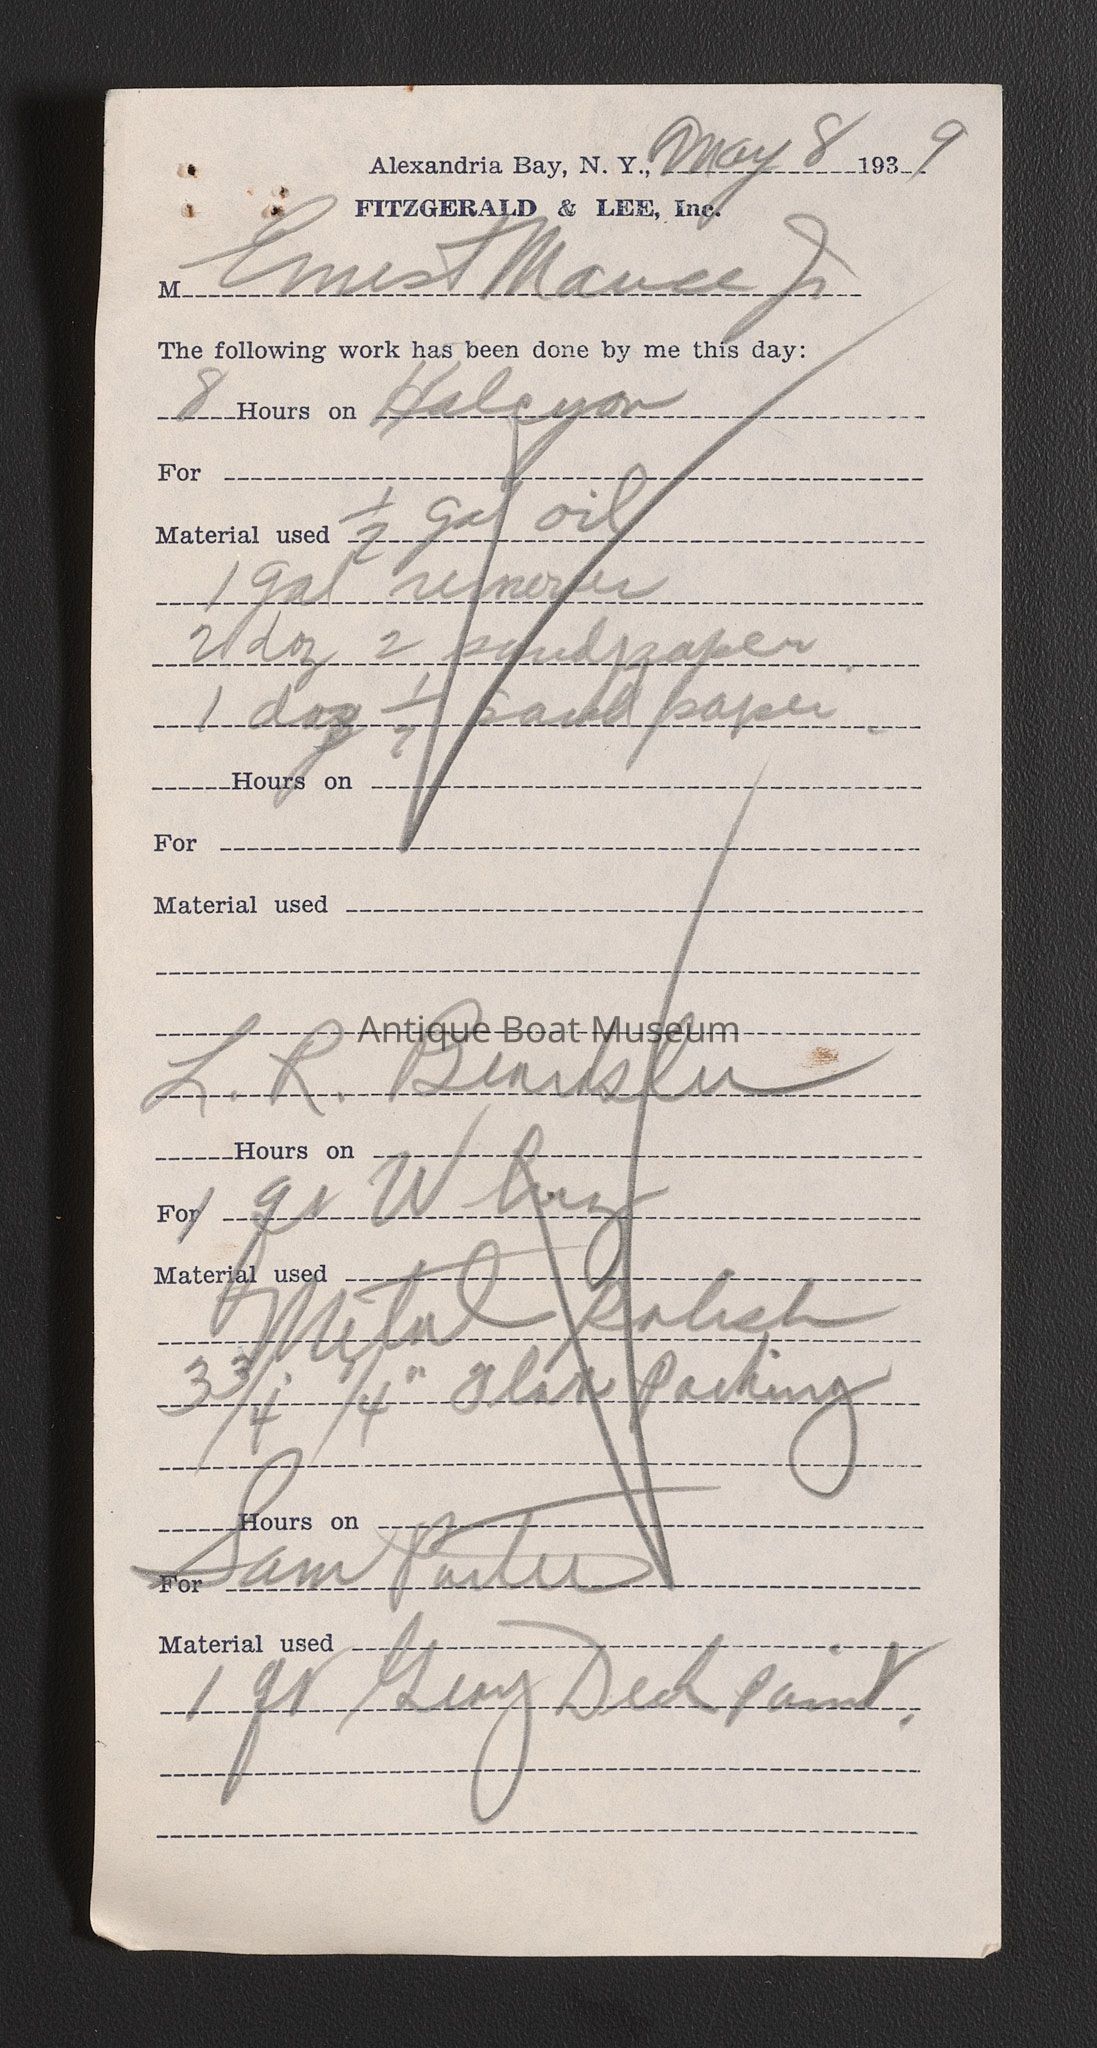 Alexandria Bay, N. Y., May 8 1939
FITZGERALD & LEE, Inc.
M Ernest Jr
The following work has been done by me this day:
8 Hours on Halcyon
For
Material used 1/2 gal oil
1 gal remover
2 doz 2 sandpaper
1 doz 1/2 sand paper
Hours on
For
Material used
Antique Boat Museum
L. R. Beardslee
Hours on
For 1 qt W
Material used
Metal Polish
3 3/4 1/4" Flax Packing
Hours on
For Sam Porter
Material used
1 qt Grey Deck Paint.